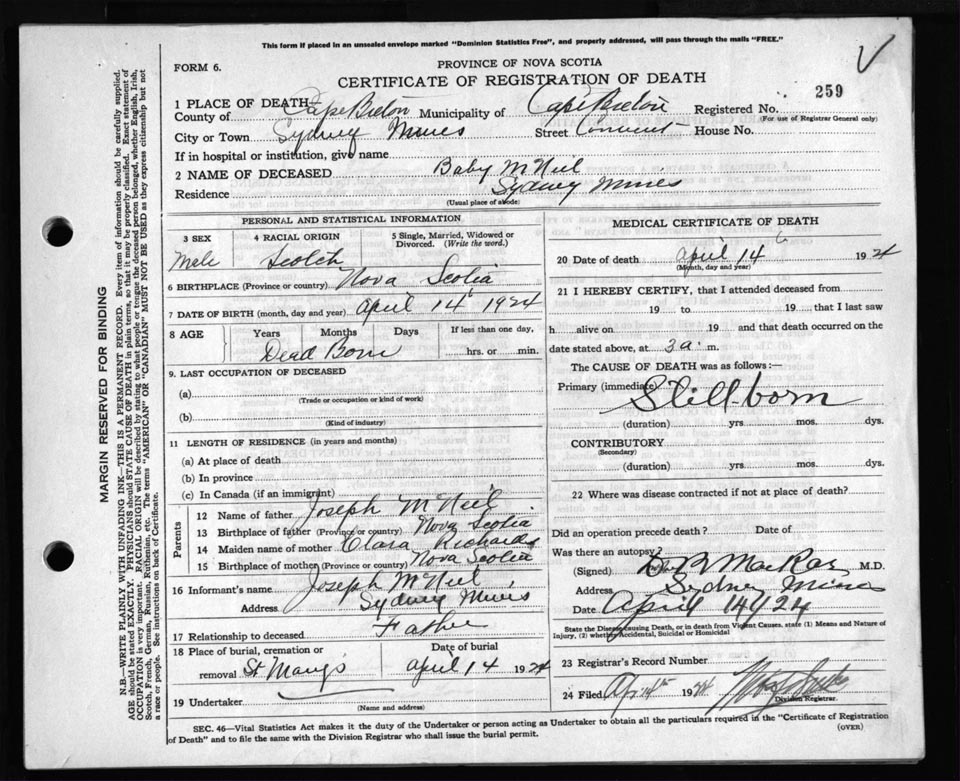 This form if placed in an unsealed envelope marked "Dominion Statistics Free", and properly addressed, will pass through the mails "FREE."
V
FORM 6.
PROVINCE OF NOVA SCOTIA
CERTIFICATE OF REGISTRATION OF DEATH
259
1 PLACE OF DEATH
County of Cape Breton Municipality of Cape Breton Registered No.
(For use of Registrar General only)
City or Town Sydney Mines Street Convent House No.
If in hospital or institution, give name
2 NAME OF DECEASED Baby McNeil
Residence Sydney Mines
(Usual place of abode)
PERSONAL AND STATISTICAL INFORMATION
3 SEX 4 RACIAL ORIGIN 5 Single, Married, Widowed or Divorced. (Write the word.)
Male Scotch
6 BIRTHPLACE (Province or country) Nova Scotia
7 DATE OF BIRTH (month, day and year) April 14 1924
8 AGE Years Months Days If less than one day,
Dead Born hrs. or min.
9. LAST OCCUPATION OF DECEASED
(a)
(Trade or occupation or kind of work)
(b)
(Kind of industry)
11 LENGTH OF RESIDENCE (in years and months)
(a) At place of death
(b) In province
(c) In Canada (if an immigrant)
Parents
12 Name of father Joseph McNeil
13 Birthplace of father (Province or country) Nova Scotia
14 Maiden name of mother Clara Richards
15 Birthplace of mother (Province or country) Nova Scotia
16 Informant's name Joseph McNeil
Address Sydney Mines
17 Relationship to deceased Father
18 Place of burial, cremation or removal St Mary's
Date of burial April 14 1924
19 Undertaker
(Name and address)
MEDICAL CERTIFICATE OF DEATH
20 Date of death April 14 1924
(Month, day and year)
21 I HEREBY CERTIFY, that I attended deceased from
19 to 19 that I last saw
h alive on 19 and that death occurred on the
date stated above, at 3 a. m.
The CAUSE OF DEATH was as follows:—
Primary (immediate) Still-born
(duration) yrs. mos. dys.
CONTRIBUTORY
(Secondary)
(duration) yrs. mos. dys.
22 Where was disease contracted if not at place of death?
Did an operation precede death? Date of
Was there an autopsy?
(Signed) MacRae M.D.
Address Sydney Mines
Date April 14/24
State the Disease causing Death, or in death from Violent Causes, state (1) Means and Nature of
Injury, (2) whether Accidental, Suicidal or Homicidal
23 Registrar's Record Number
24 Filed 1924
Division Registrar.
SEC. 46—Vital Statistics Act makes it the duty of the Undertaker or person acting as Undertaker to obtain all the particulars required in the "Certificate of Registration
of Death" and to file the same with the Division Registrar who shall issue the burial permit.
(OVER)
MARGIN RESERVED FOR BINDING
N.B.—WRITE PLAINLY WITH UNFADING INK—THIS IS A PERMANENT RECORD. Every item of information should be carefully supplied.
AGE should be stated EXACTLY. PHYSICIANS should STATE CAUSE OF DEATH in plain terms, so that it may be properly classified. Exact statement of
OCCUPATION is very important. RACIAL ORIGIN will be described by stating to what people or tongue the deceased person belonged, whether English, Irish,
Scotch, French, German, Russian, Ruthenian, etc. The terms "AMERICAN" OR "CANADIAN" MUST NOT BE USED as they express citizenship but not
a race or people. See instructions on back of Certificate.